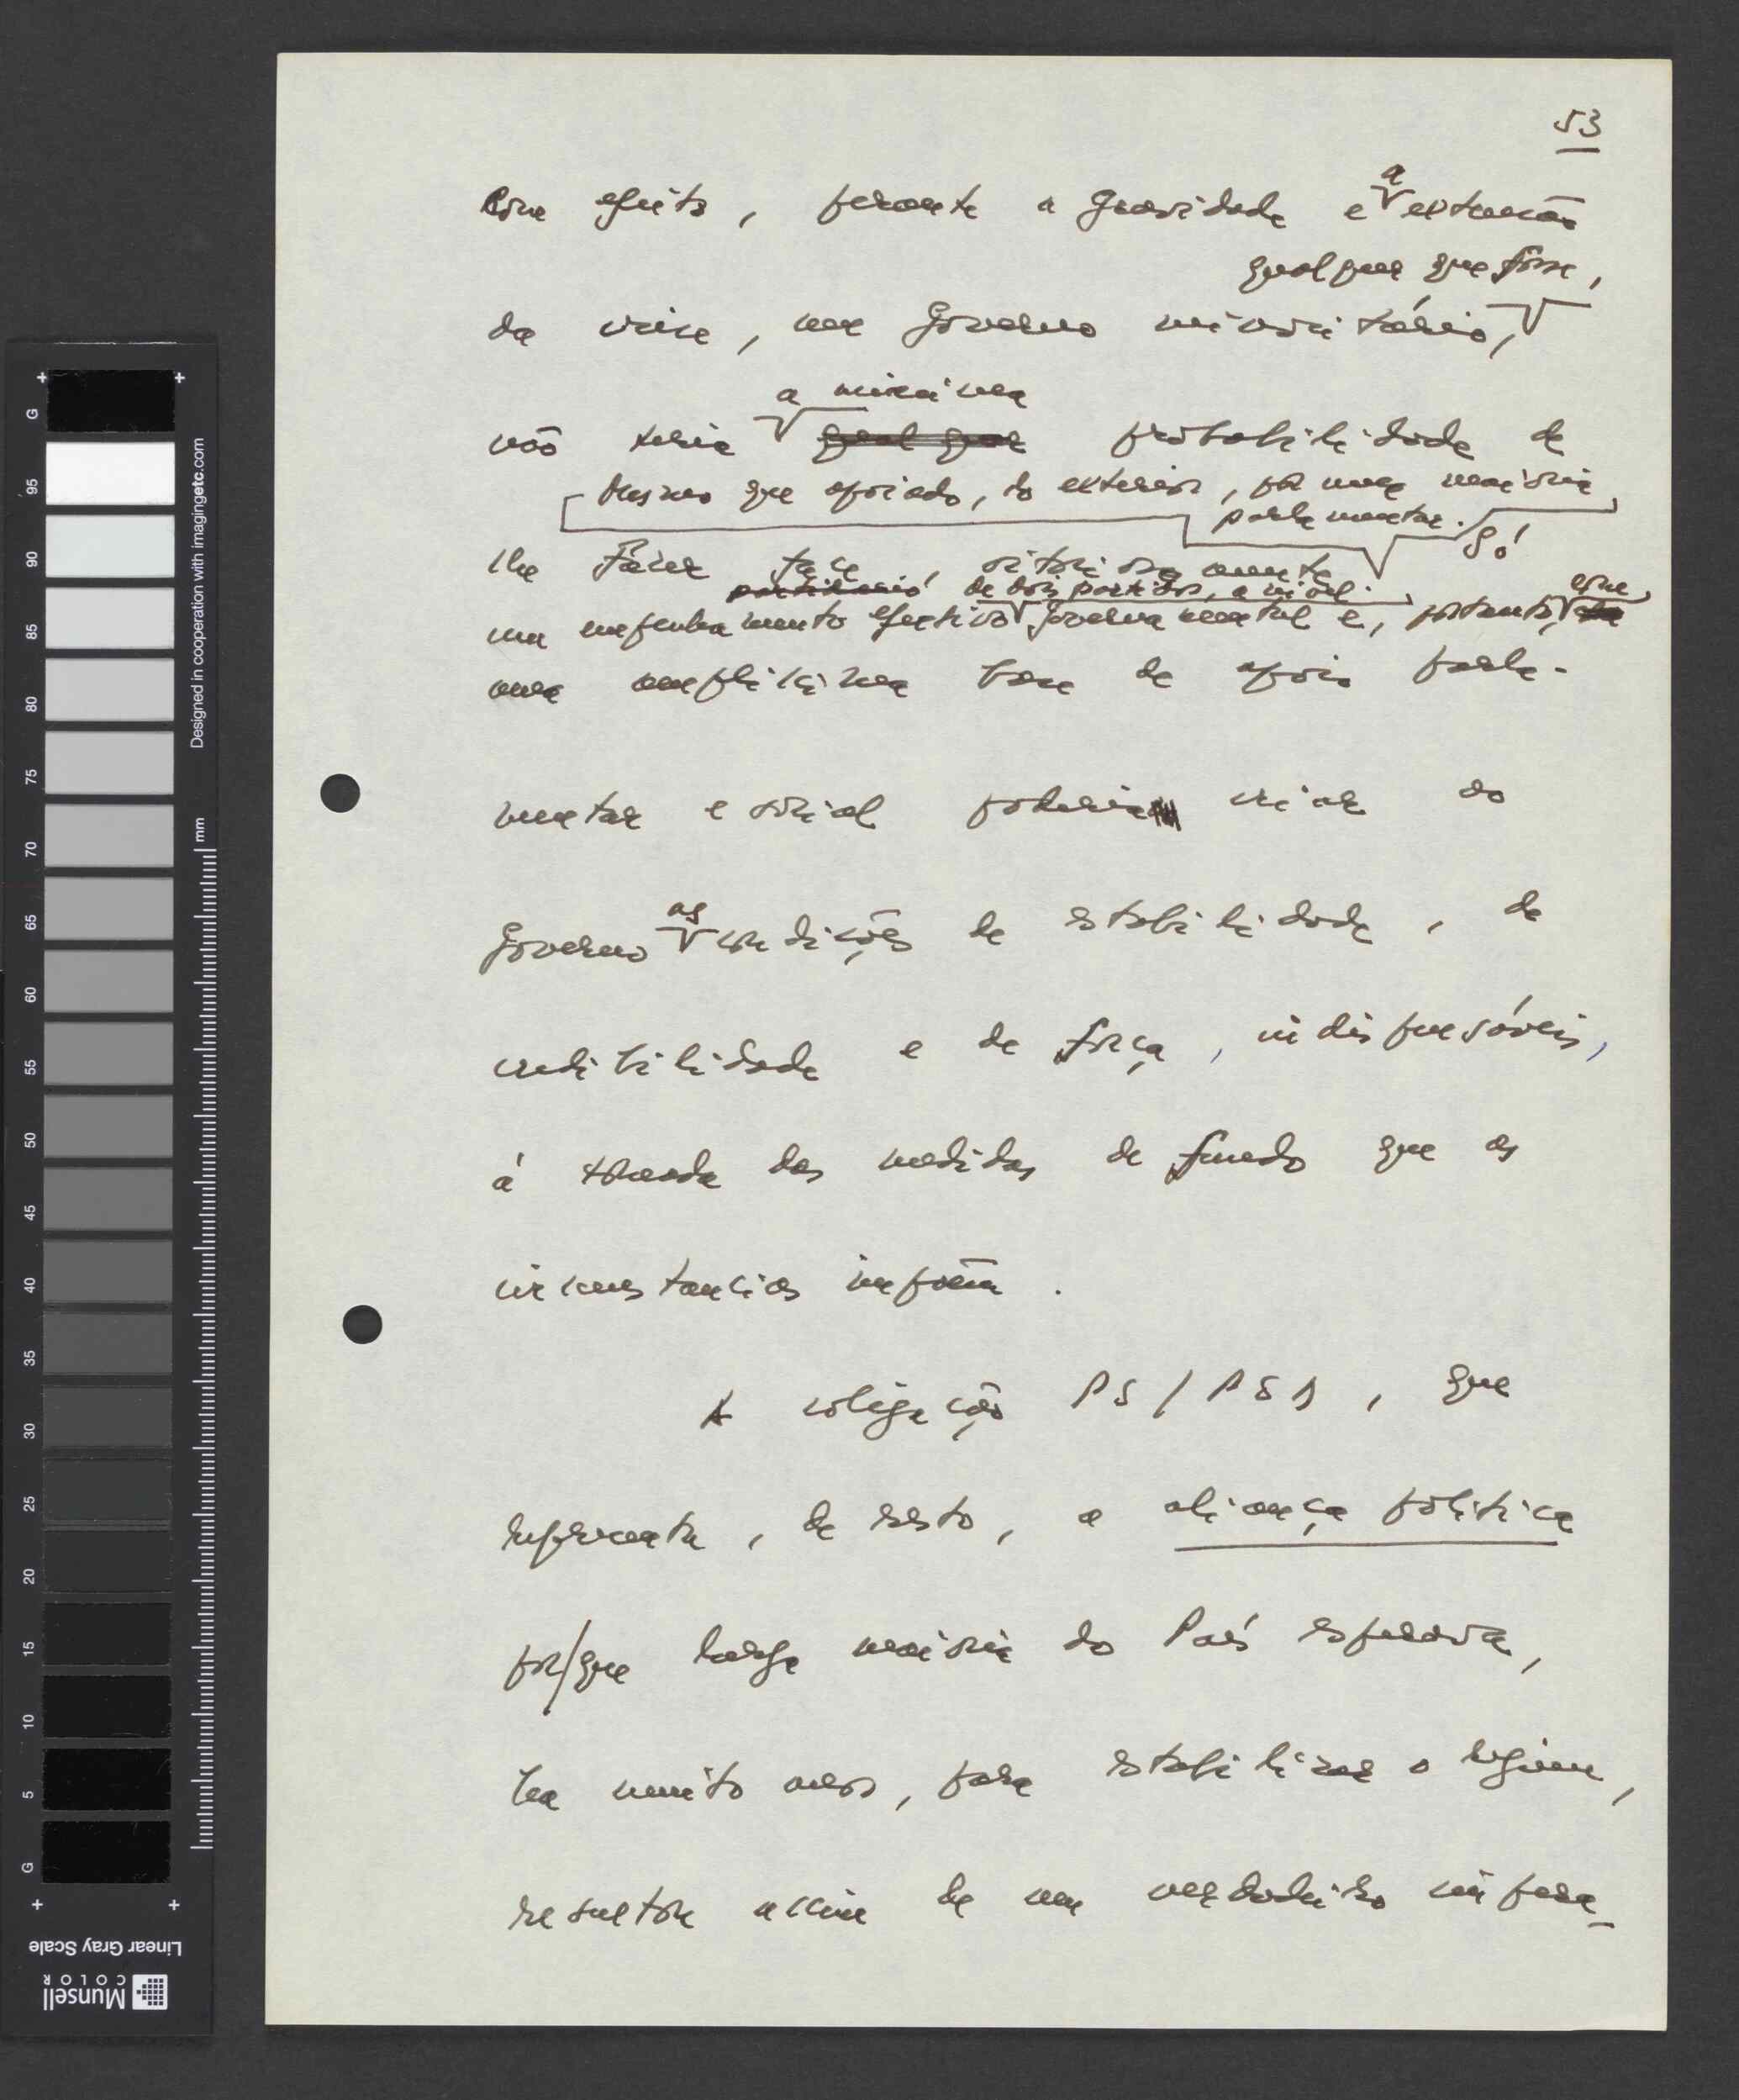 53
Com efeito, perante a gravidade e a extensão
qualquer que fosse,
da crise, um Governo minoritário,
a mínima
não teria qualquer probabilidade de
Mesmo que apoiado, do exterior, por uma maioria
parlamentar. Só
lhe fazer face, vitoriosamente
partidário de dois partidos, a nível com
um empenhamento efectivo governamental e, portanto,
uma amplíssima base de apoio parla-
mentar e social poderia criar ao
Governo as condições de estabilidade, de
credibilidade e de força, indispensáveis,
à tomada das medidas de fundo que as
circunstancias impõem.
A coligação PS/PSD, que
representa, de resto, a aliança política
por/que larga maioria do País esperava,
ha muito anos, para estabilizar o regime,
resultou assim de um verdadeiro impera-
G 95 90 85 80 75 70 65 60 55 50 45 40 35 30 25 20 15 10 5 G
mm
Designed in cooperation with imagingetc.com
Linear Gray Scale
Munsell
COLOR